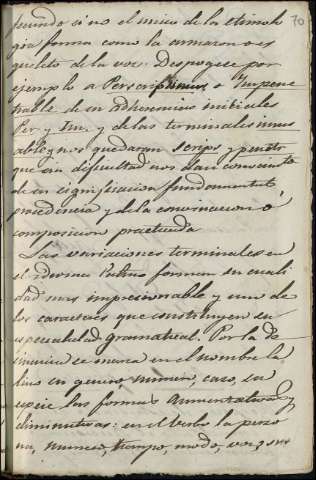 fecundo sino el unico de la etimolo
gia forma como la armazon o es
queleto de la voz. Despojese por
ejemplo a Perscriptimus o Impene
trable de su adherencias iniciales
Per y Im, y de las terminales imus
able, y nos quedaran scrips y penetr
que sin dificultad nos dan conociento
de su significacion fundamental
procedencia y de la convinacion o
composicion practicada
Las variaciones terminales en
el idioma Latino forman su cuali
dad mas impresionable y uno de
los caracteres que constituyen su
especialidad gramatical. Por la de
sinencia se marca en el nombre la
tino su genero, numero, caso, su
especie las formas Aumentativas y
diminutivas: en el verbo la perso
na, numero, tiempo, modo, voz, sus
70